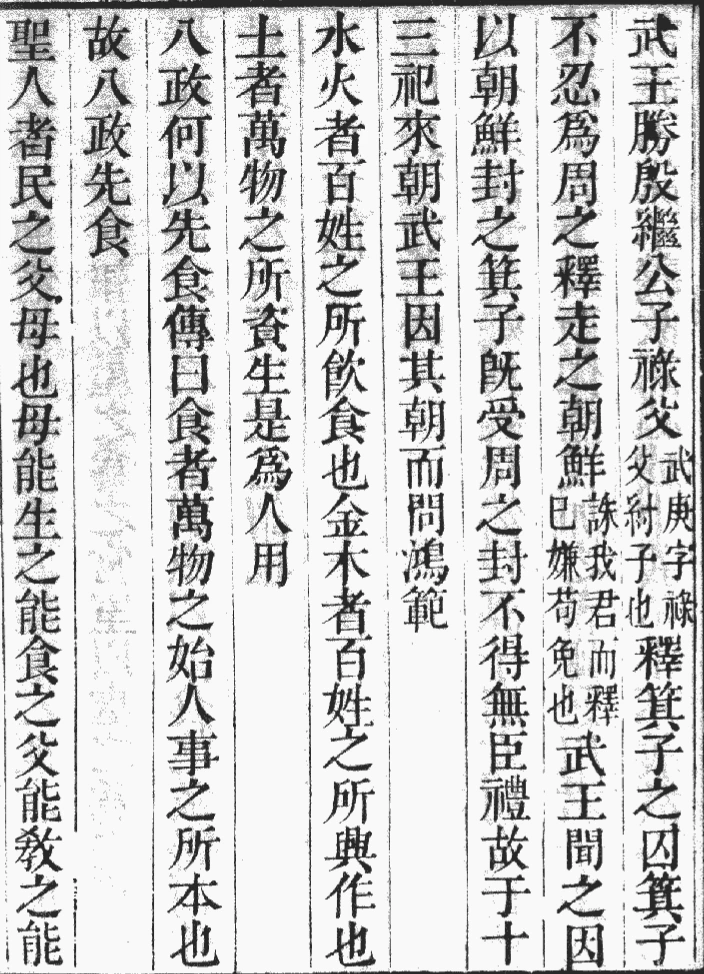 武王勝殷繼公子祿父武庚字祿父紂子也釋箕子之囚箕子
不忍爲周之釋走之朝鮮誅我君而釋己嫌苟免也武王聞之因
以朝鮮封之箕子旣受周之封不得無臣禮故于十
三祀來朝武王因其朝而問鴻範
水火者百姓之所飲食也金木者百姓之所興作也
土者萬物之所資生是爲人用
八政何以先食傳曰食者萬物之始人事之所本也
故八政先食
聖人者民之父母也母能生之能食之父能敎之能